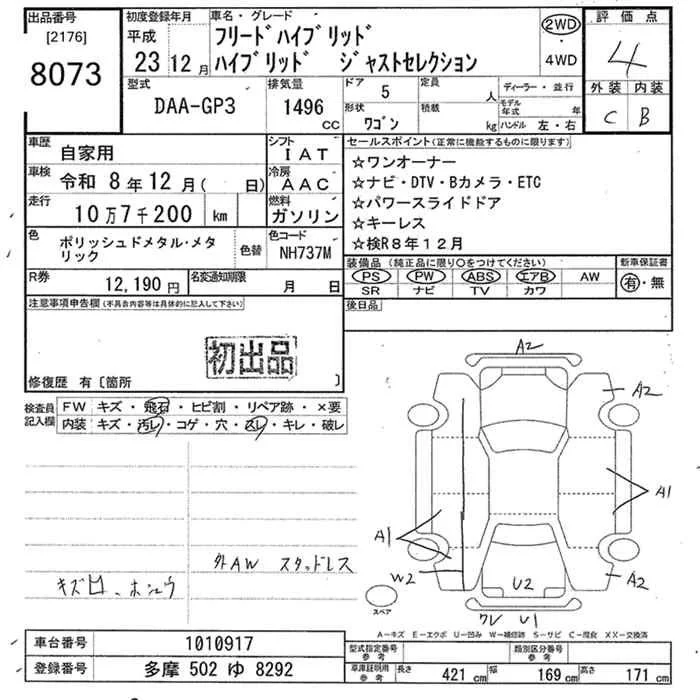 出品番号
[2176]
8073
初度登録年月
平成
23 12 月
車名・グレード
フリードハイブリッド
ハイブリッド ジャストセレクション
2WD
・
4WD
評価点
4
外装 内装
C B
型式
DAA-GP3
排気量
1496
CC
ドア 5
形状
ワゴン
定員 人
積載 kg
ディーラー・並行
モデル年式 年
ハンドル 左・右
車歴
自家用
シフト
IAT
車検
令和 8年 12月( 日)
冷房
AAC
走行
10万7千200 km
燃料
ガソリン
色
ポリッシュドメタル・メタ
リック
色替
色コード
NH737M
R券
12,190円
名変通知期限
月 日
セールスポイント(正常に機能するものに限ります)
☆ワンオーナー
☆ナビ・DTV・Bカメラ・ETC
☆パワースライドドア
☆キーレス
☆検R8年12月
装備品(純正品に限り○をつけてください)
PS PW ABS エアB AW
SR ナビ TV カワ
新車保証書
有・無
後日品
注意事項申告欄(不具合内容等は具体的に記入して下さい)
初出品
修復歴 有〔箇所 〕
検査員
記入欄
FW キズ・飛石・ヒビ割・リペア跡・×要
内装 キズ・汚レ・コゲ・穴・スレ・キレ・破レ
外AW スタッドレス
A2
A2
A1
A1
W2
U2
A2
スペア
ワレ U1
A-キズ E-エクボ U-凹み W-補修跡 S-サビ C-腐食 XX-交換済
車台番号
1010917
登録番号
多摩 502 ゆ 8292
型式指定番号
参考
類別区分番号
参考
車庫証明用
参考
長さ 421 cm 幅 169 cm 高さ 171 cm